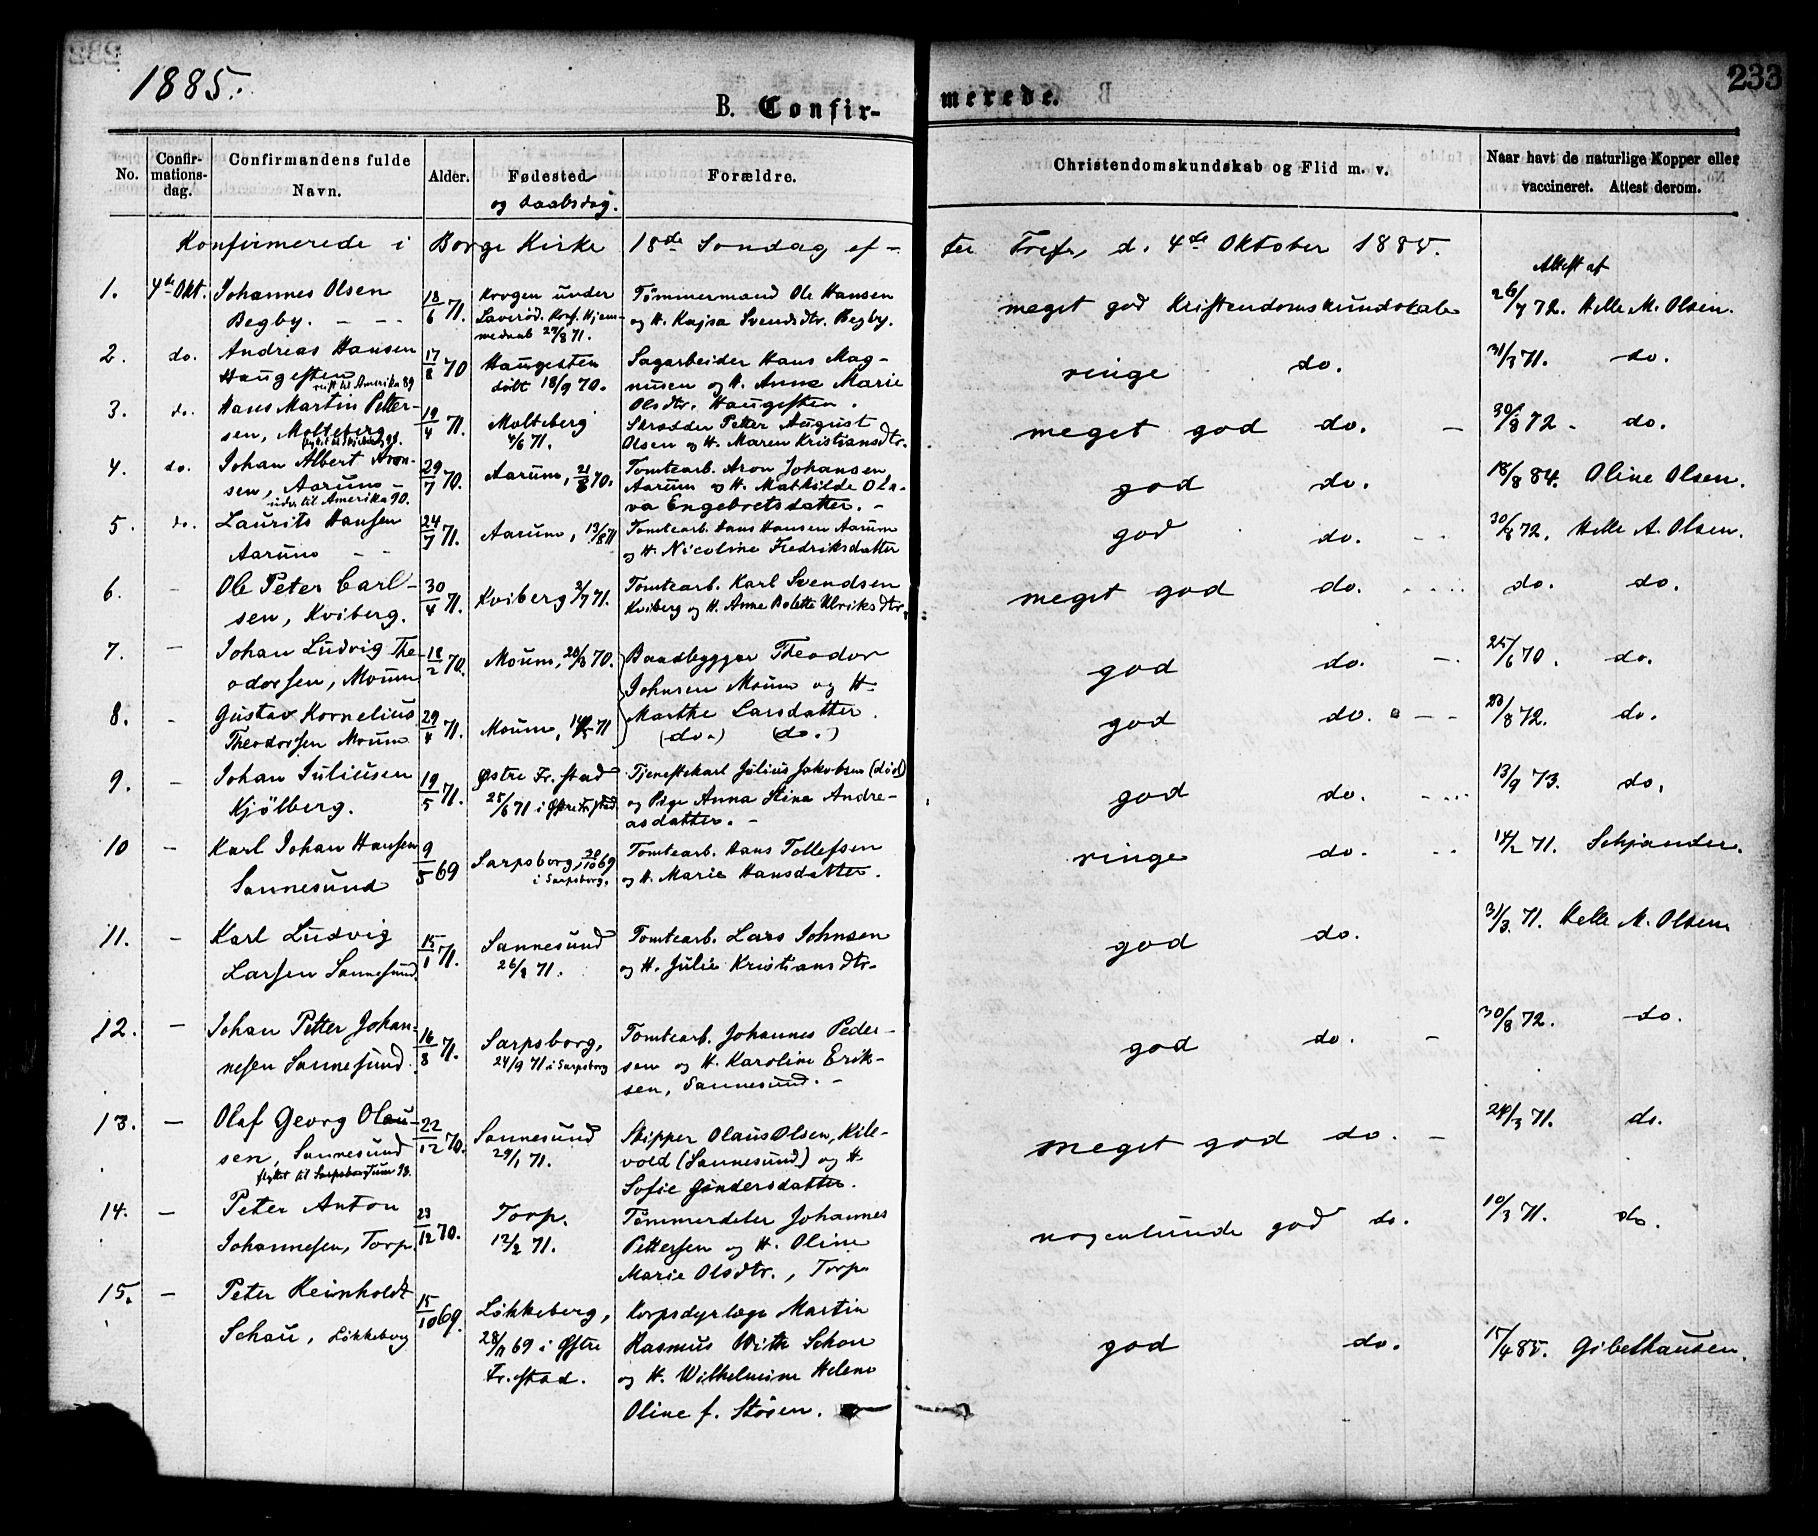 1885.
233
B. Confir-
merede.
No.
Confir-
mations-
dag.
Confirmandens fulde
Navn.
Alder.
Fødested
og Daabsdag.
Forældre.
Christendomskundskab og Flid m. v.
Naar havt de naturlige Kopper eller
vaccineret. Attest derom.
Konfirmerede i Borge Kirke 18de Søndag ef-
ter Trefr, d. 4de Oktober 1885.
Attest af
1. 4de Okt. Johannes Olsen
Begby. - - -
18/6 71.
Krogen under
71.
Tømmermand Ole Hansen
og H. Kajsa Svendsdtr. Begby.
meget god Kristendomskundskab
26/7 72. Helle M. Olsen.
2. do. Andreas Hansen
Haugesten
reist til Amerika 89
17/8 70
Haugesten
döbt 18/9 70.
Sagarbeider Hans Mag-
nusen og H. Anne Marie
Olsdtr. Haugesten.
ringe do.
31/3 71. do.
3. do. Hans Martin Petter-
sen, Molteberg
19/4 71.
Molteberg
4/6 71.
Skrædder Petter August
Olsen og H. Maren Kristiansdtr.
meget god do. -
30/8 72. do.
4. do. Johan Albert Aron-
sen, Aarum -
udv. til Amerika 90.
29/7 70.
Aarum, 21/8 70.
Tomtearb. Aron Johansen
Aarum og H. Mathilde Ola-
va Engebretsdatter. -
god do.
18/8 84. Oline Olsen.
5. do. Laurits Hansen
Aarum - -
24/7 71.
Aarum, 13/8 71
Tomtearb. Hans Hansen Aarum
og H. Nicoline Fredriksdatter
god do.
30/8 72. Helle A. Olsen.
6. - Ole Peter Carl-
sen, Kviberg.
30/4 71.
Kviberg 2/7 71.
Tomtearb. Karl Svendsen
Kviberg og H. Anne Bolette Ulriksdtr.
meget god do.
do. do.
7. - Johan Ludvig The-
odorsen, Moum
18/2 70.
Moum, 20/3 70.
Baadbygger Theodor
Johnsen Moum og H.
Marthe Larsdatter.
god do.
25/6 70. do.
8. - Gustav Kornelius
Theodorsen Moum
29/4 71.
Moum, 71
(do.) (do.)
god do.
20/8 72. do.
9. - Johan Juliusen
Kjölberg.
19/5 71.
Østre Fr.stad
25/6 71 i Østre Fr.stad
Tjenestekarl Julius Jakobsen (död)
og Pige Anna Stina Andre-
asdatter. -
god do.
13/9 73. do.
10 - Karl Johan Hansen
Sannesund
9/5 69
Sarpsborg, 20/10 69
i Sarpsborg.
Tomtearb. Hans Tollefsen
og H. Marie Hansdatter.
ringe do.
14/2 71. Schjander.
11. - Karl Ludvig
Larsen Sannesund
15/1 71.
Sannesund
26/3 71.
Tomtearb. Lars Johnsen
og H. Julie Kristiansdtr.
god do.
31/3 71. Helle M. Olsen
12. - Johan Petter Johan-
nesen Sannesund
16/8 71.
Sarpsborg,
24/9 71 i Sarpsborg
Tomtearb. Johannes Peder-
sen og H. Karoline Erik-
sen, Sannesund. -
god do. -
30/8 72. do.
13. - Olaf Georg Olau-
sen, Sannesund
flyttet til Sarpsborg 93.
22/12 70.
Sannesund
29/1 71.
Skipper Olaus Olsen, Kile-
vold (Sannesund) og H.
Sofie Gundersdatter.
meget god do. -
24/3 71. do.
14. - Peter Anton
Johannesen, Torp
23/12 70.
Torp.
12/2 71.
Tømmerdeler Johannes
Pettersen og H. Oline
Marie Olsdtr., Torp
nogenlunde god do.
10/3 71. do.
15. - Peter Reinholdt
Schau, Lökkeberg
15/10 69.
Lökkeberg,
28/11 69 i Østre
Fr.stad.
Korpsdyrlæge Martin
Rasmus With Schau
og H. Wilhelmine Helene
Oline f. Stösen.
god do.
15/4 85. Gibelhausen.